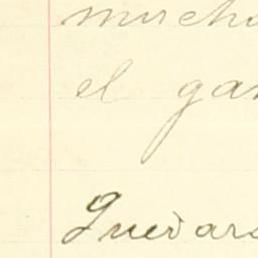 mucho
el gan
Quedara